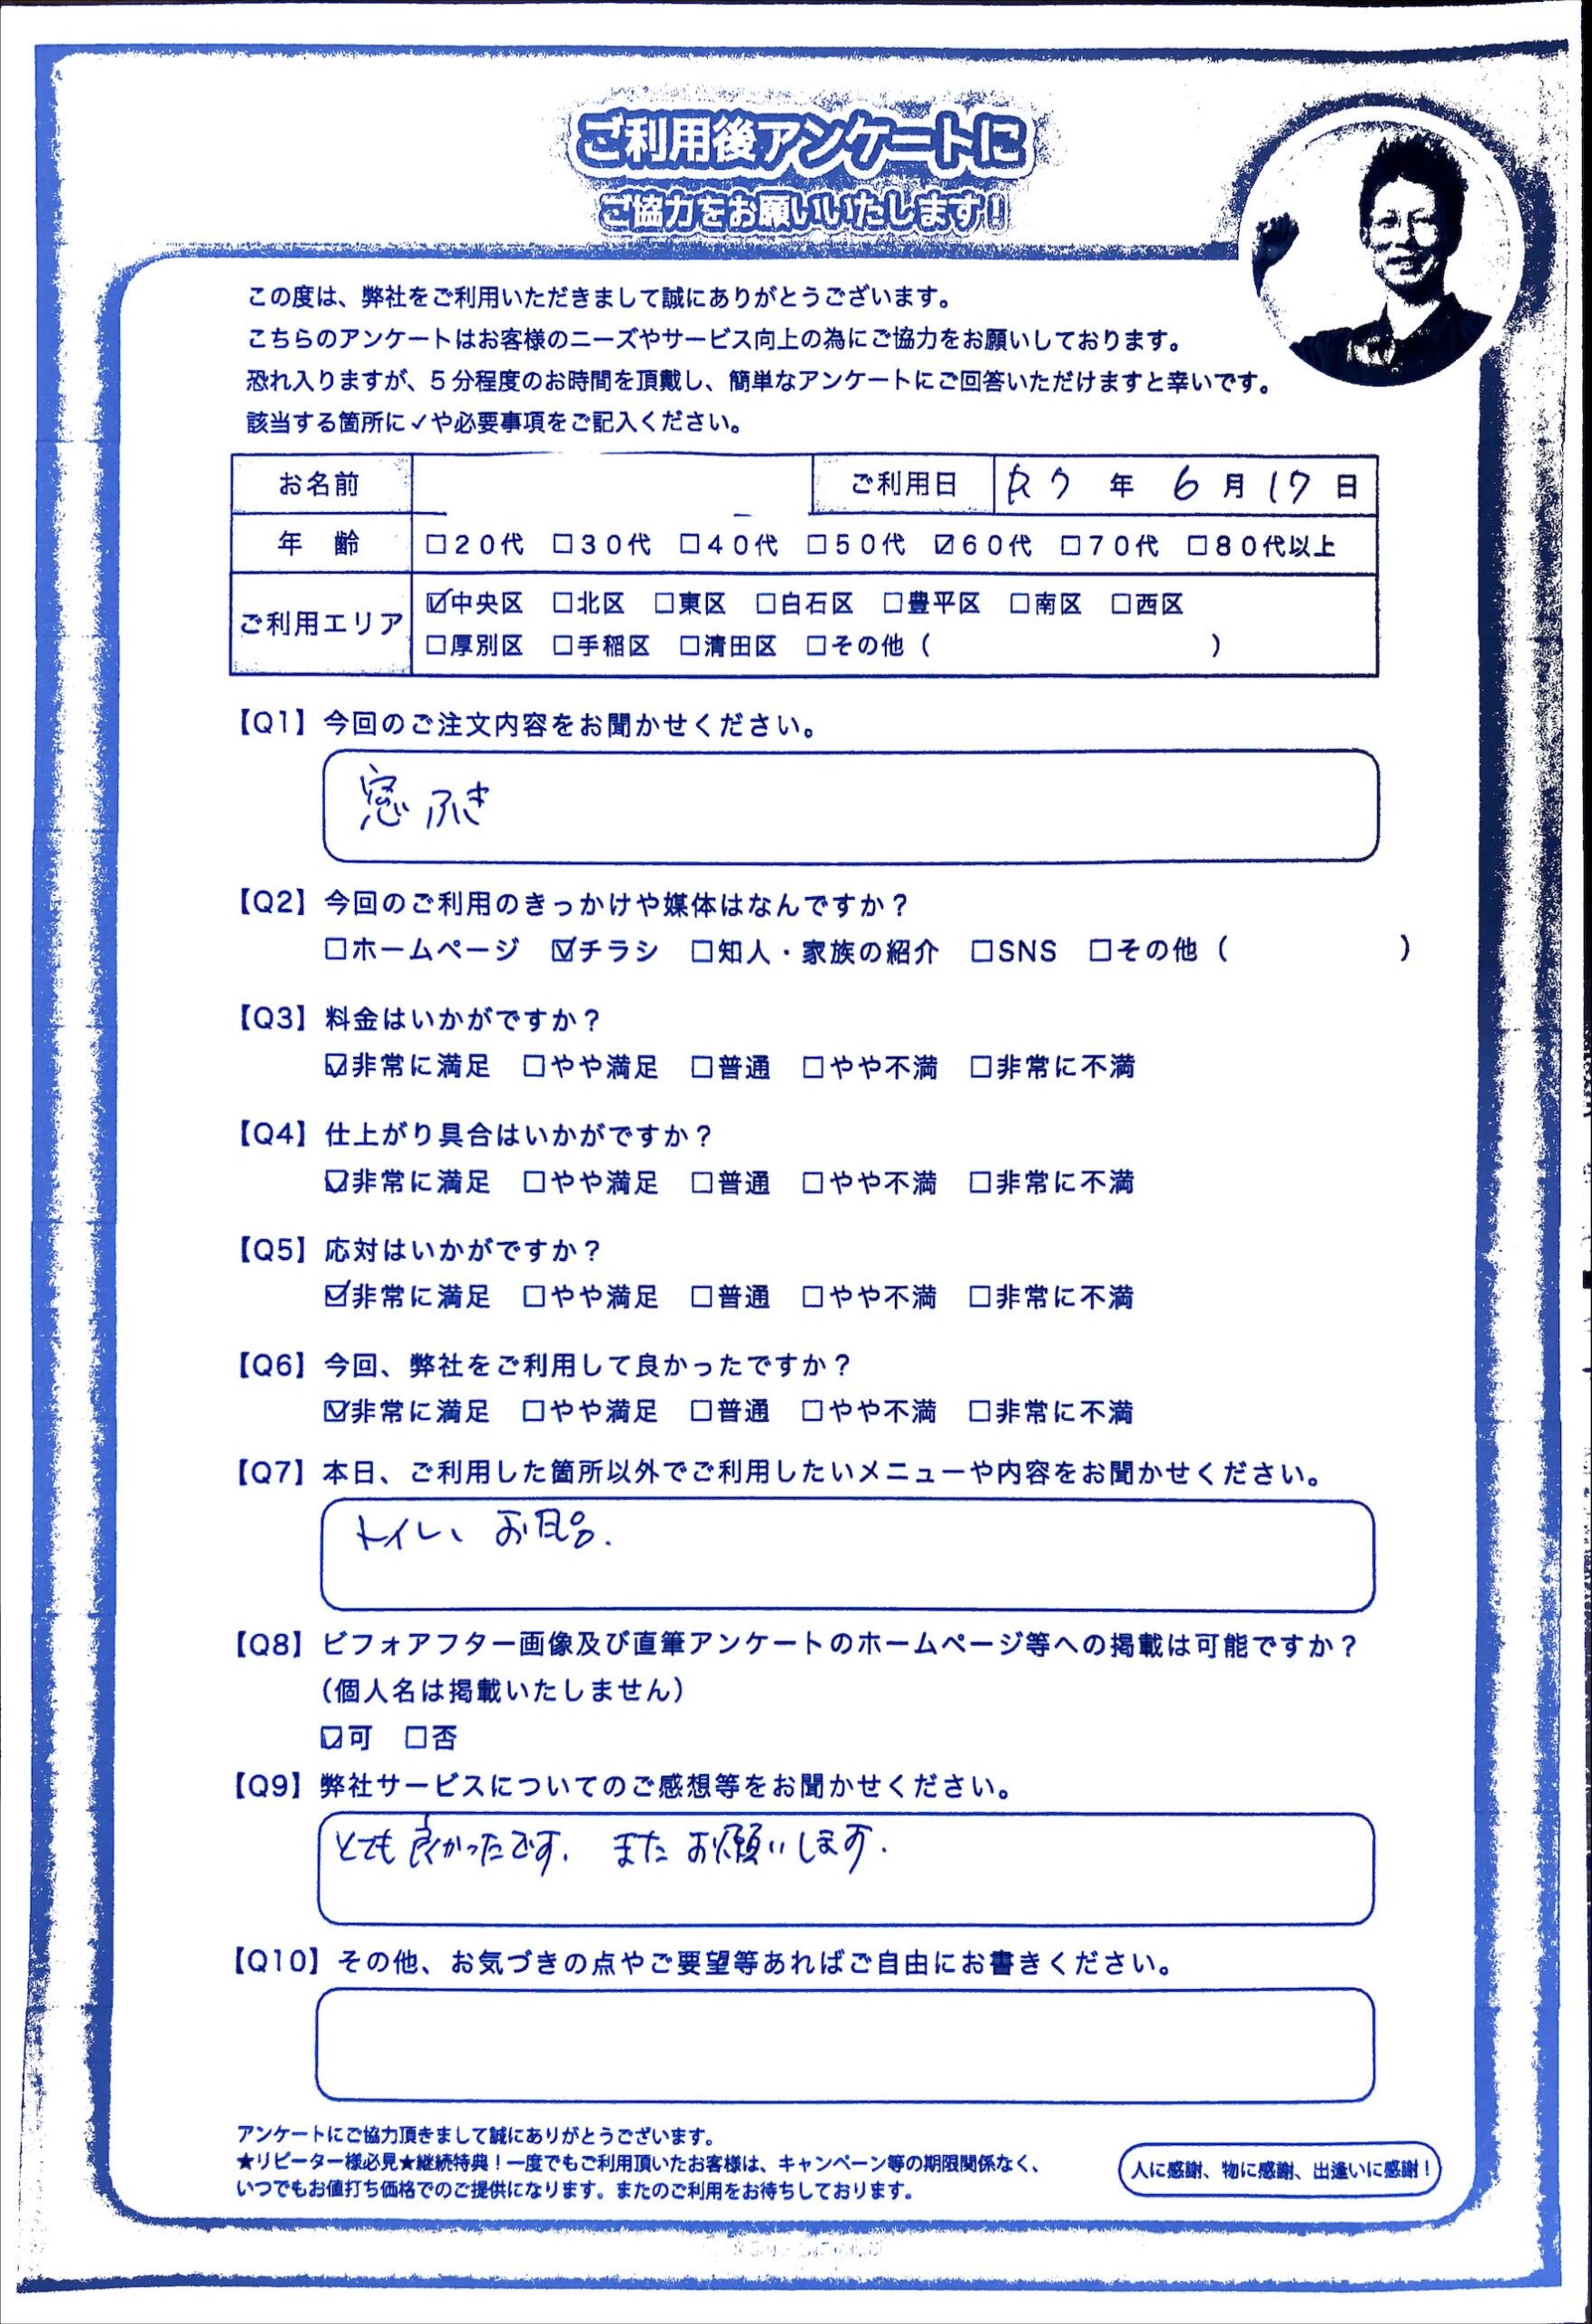 ご利用後アンケートに
ご協力をお願いいたします!
この度は、弊社をご利用いただきまして誠にありがとうございます。
こちらのアンケートはお客様のニーズやサービス向上の為にご協力をお願いしております。
恐れ入りますが、5分程度のお時間を頂戴し、簡単なアンケートにご回答いただけますと幸いです。
該当する箇所に✓や必要事項をご記入ください。
お名前 ご利用日 R7 年 6 月 17 日
年 齢 □20代 □30代 □40代 □50代 ☑60代 □70代 □80代以上
ご利用エリア ☑中央区 □北区 □東区 □白石区 □豊平区 □南区 □西区
□厚別区 □手稲区 □清田区 □その他 ( )
【Q1】今回のご注文内容をお聞かせください。
窓ふき
【Q2】今回のご利用のきっかけや媒体はなんですか?
□ホームページ ☑チラシ □知人・家族の紹介 □SNS □その他 ( )
【Q3】料金はいかがですか?
☑非常に満足 □やや満足 □普通 □やや不満 □非常に不満
【Q4】仕上がり具合はいかがですか?
☑非常に満足 □やや満足 □普通 □やや不満 □非常に不満
【Q5】応対はいかがですか?
☑非常に満足 □やや満足 □普通 □やや不満 □非常に不満
【Q6】今回、弊社をご利用して良かったですか?
☑非常に満足 □やや満足 □普通 □やや不満 □非常に不満
【Q7】本日、ご利用した箇所以外でご利用したいメニューや内容をお聞かせください。
トイレ、お風呂.
【Q8】ビフォアフター画像及び直筆アンケートのホームページ等への掲載は可能ですか?
(個人名は掲載いたしません)
☑可 □否
【Q9】弊社サービスについてのご感想等をお聞かせください。
とても良かったです. またお願いします.
【Q10】その他、お気づきの点やご要望等あればご自由にお書きください。
アンケートにご協力頂きまして誠にありがとうございます。
★リピーター様必見★継続特典!一度でもご利用頂いたお客様は、キャンペーン等の期限関係なく、
いつでもお値打ち価格でのご提供になります。またのご利用をお待ちしております。
人に感謝、物に感謝、出逢いに感謝!